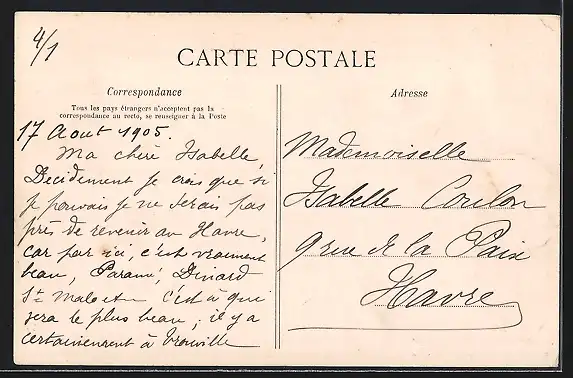 4/1
CARTE POSTALE
Correspondance
Tous les pays étrangers n'acceptent pas la
correspondance au recto, se renseigner à la Poste
17 Aout 1905.
Ma chère Isabelle,
Decidement je crois que si
je pouvais je ne serais pas
près de revenir au Havre,
car par ici, c'est vraiment
beau, Paramé, Dinard
St Malo etc c'est à qui
sera le plus beau; il y a
certainement à Trouville
Adresse
Mademoiselle
Isabelle Coulon
9 rue de la Paix
Havre